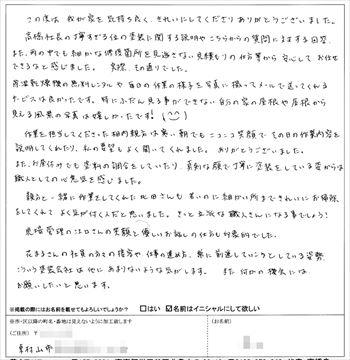 この度は、我が家を気持ち良く、きれいにしてくださりありがとうございました。
高橋社長の丁寧すぎる位の塗装に関する説明やこちらからの質問にはすする回答、
また、雨の中でも細かな修復箇所を見逃さない見積もりの内容等から安心してお任せ
できるなと感じました。実際、その通りでした。
高圧乾燥機の無料レンタルや毎日の作業の様子を写真に撮ってメールで送ってくれる
サービスは良かったです。特に、ふだん見る事ができない自分の家の屋根や屋根から
見える風景の写真は嬉しかったです!
作業を担当してくださった親方は寒い朝でもニコニコ笑顔でその日の作業内容を
説明してくれたり、私の要望もよく聞いてくれました。ありがとうございました。
また、お昼休みでも塗料の調合をしていたり、真剣な顔で丁寧に塗装をしている姿からは
職人としての心意気を感じました。
親方と一緒に作業としてくれた北田さんも若いのに細かい所まできれいにお掃除
をしてくれてよく気が付く人だと思いました。きっと立派な職人さんになる事でしょう!
現場管理の江口さんの笑顔と優しいお話しの仕方も印象的でした。
花まるさんの社員の方々の接客や仕事の進め方、常に前進していこうとしている姿勢
こういう塗装会社は他にあまりないような気がします。また何かの機会には
お願いしたいと思います。
※掲載の際にはお名前を載せてもよろしいでしょうか? □はい ☑名前はイニシャルにして欲しい
※市・区以降の町名・番地は見えないように加工致します
(ご住所) 〒
(お名前)
東村山市